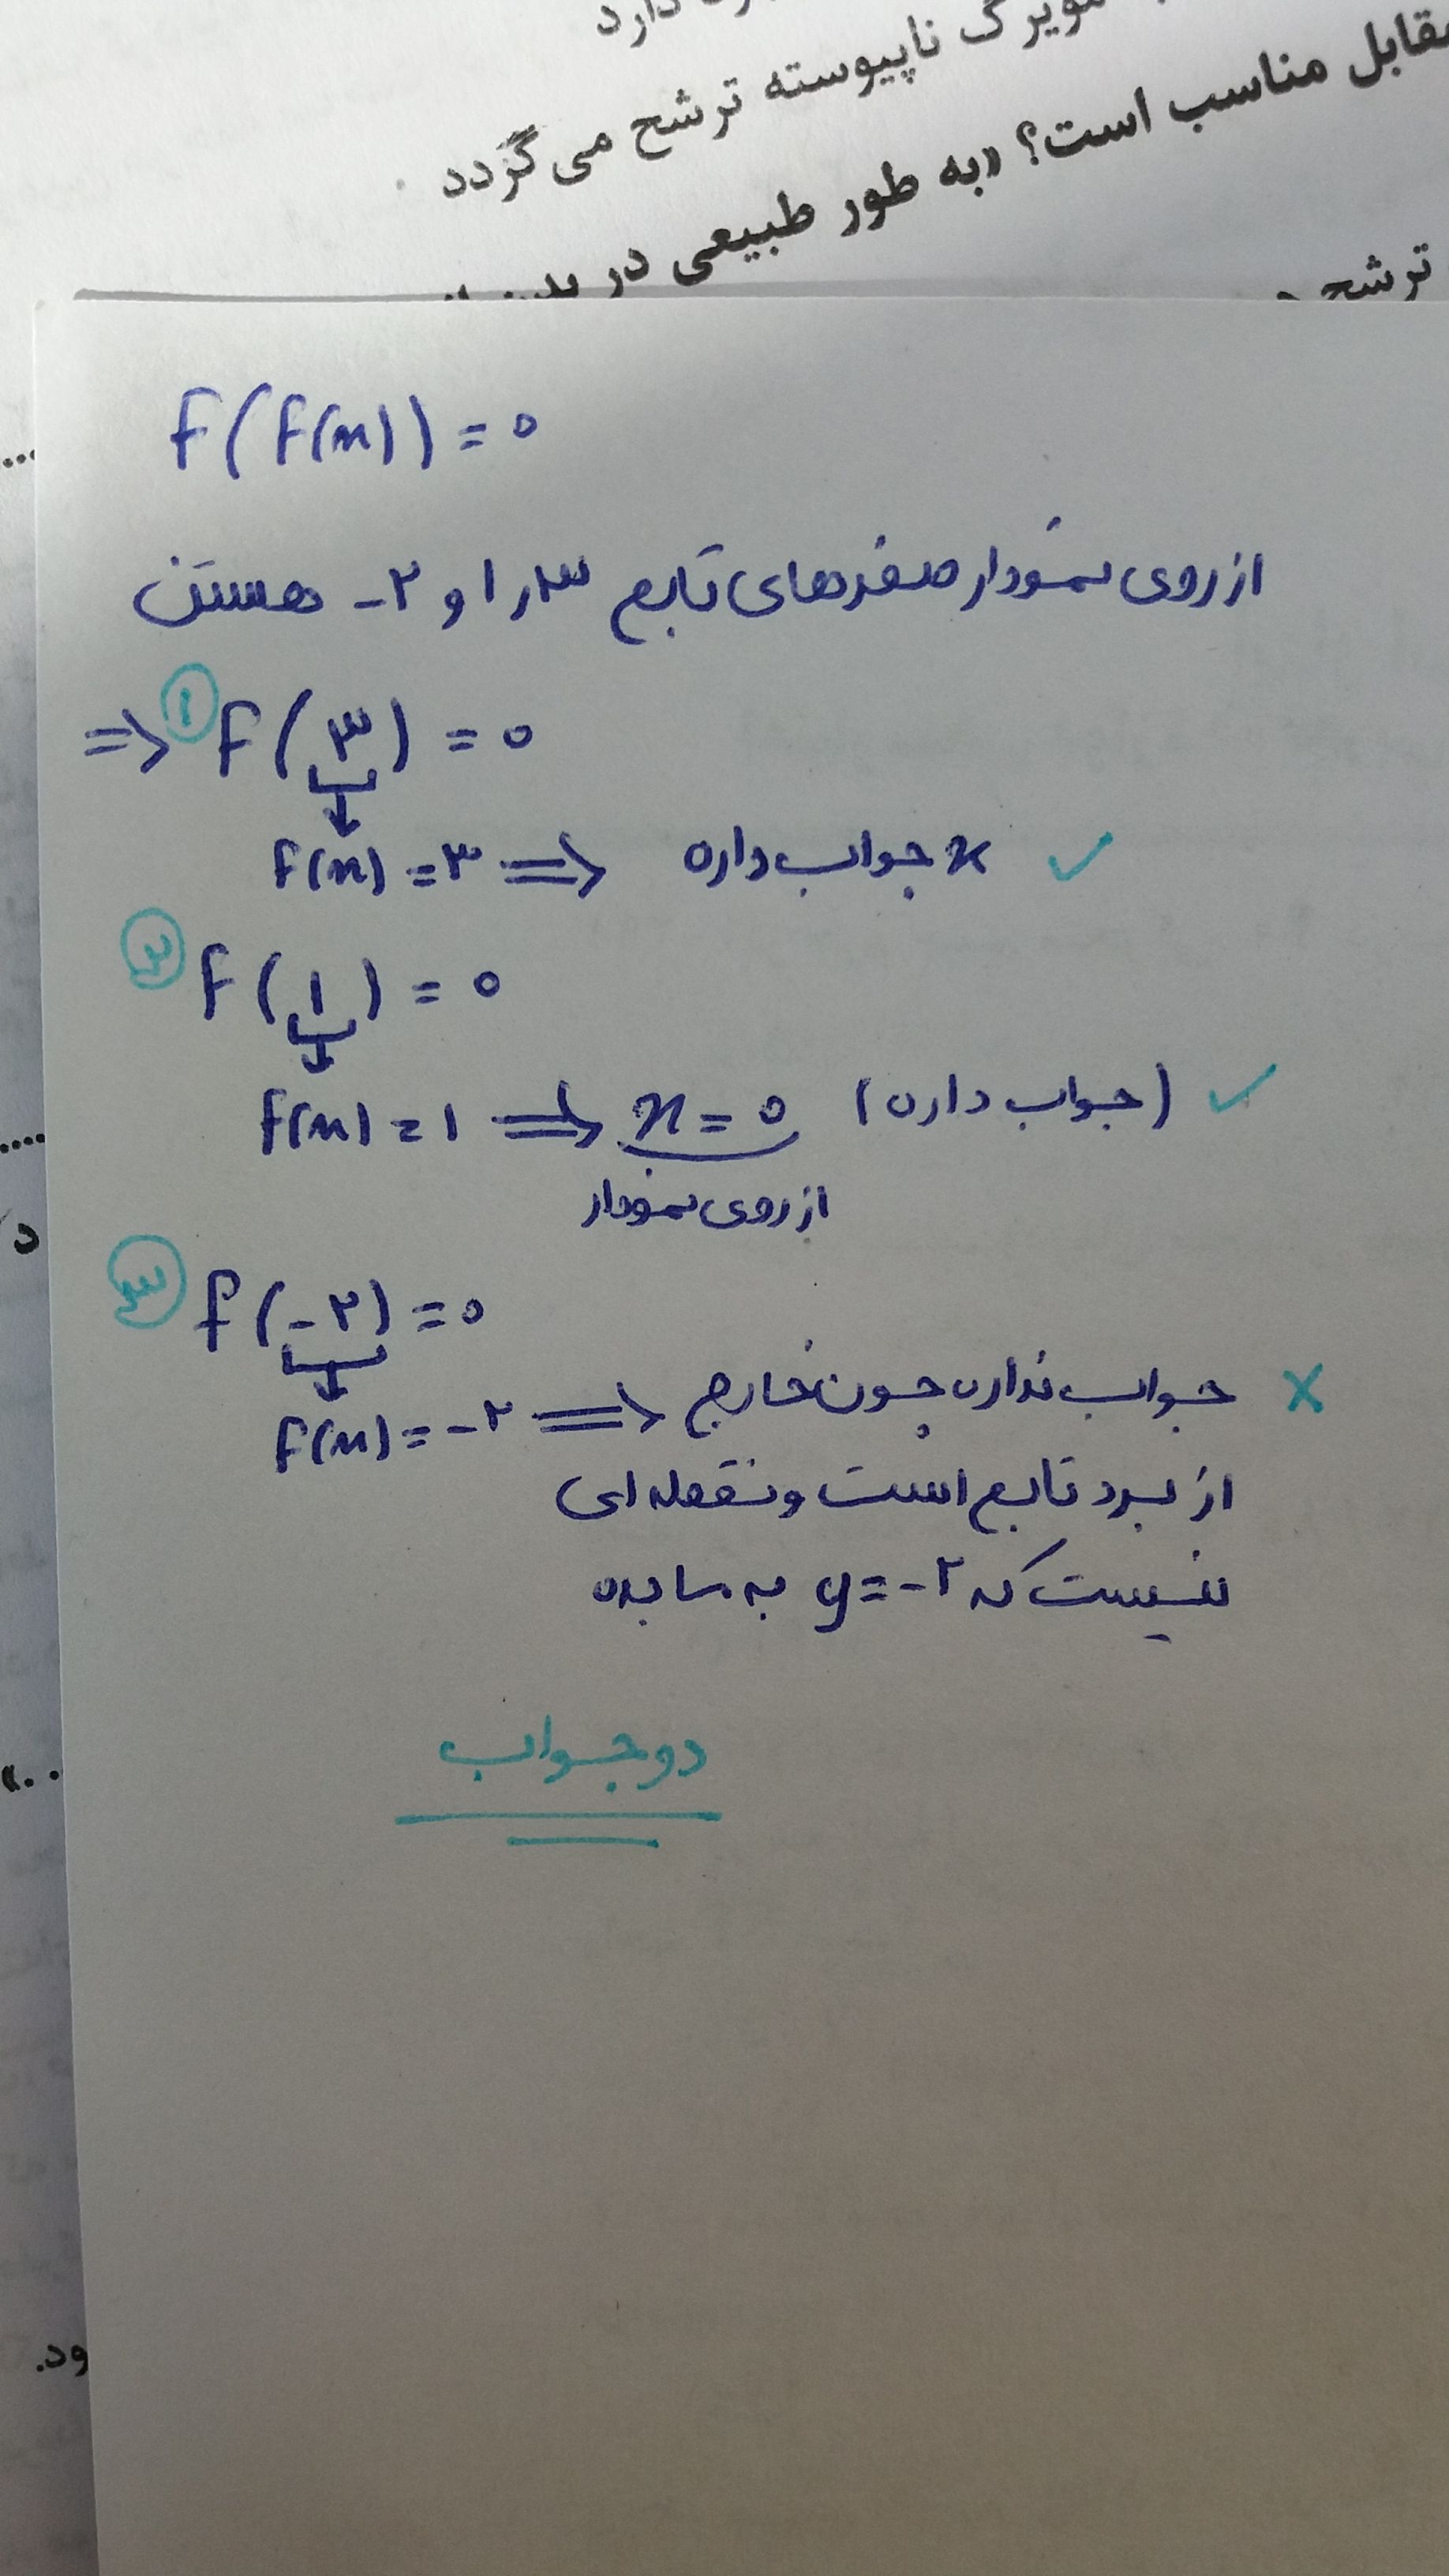 دارد
مویرگ ناپیوسته ترشح می‌گردد
مقابل مناسب است؟ «به طور طبیعی در بدن
ترشح
f(f(x)) = 0
از روی نمودار صفرهای تابع ۳ , ۱ و ۲- هستن
=> ① f(۳) = 0
f(x) = ۳ => x جواب داره ✓
② f(۱) = 0
f(x) = ۱ => x = 0 (جواب داره) ✓
از روی نمودار
③ f(-۲) = 0
f(x) = -۲ => جواب نداره چون خارج ✗
از برد تابع است و نقطه ای
نیست که y = -۲ به ما بده
دو جواب
د
ود.